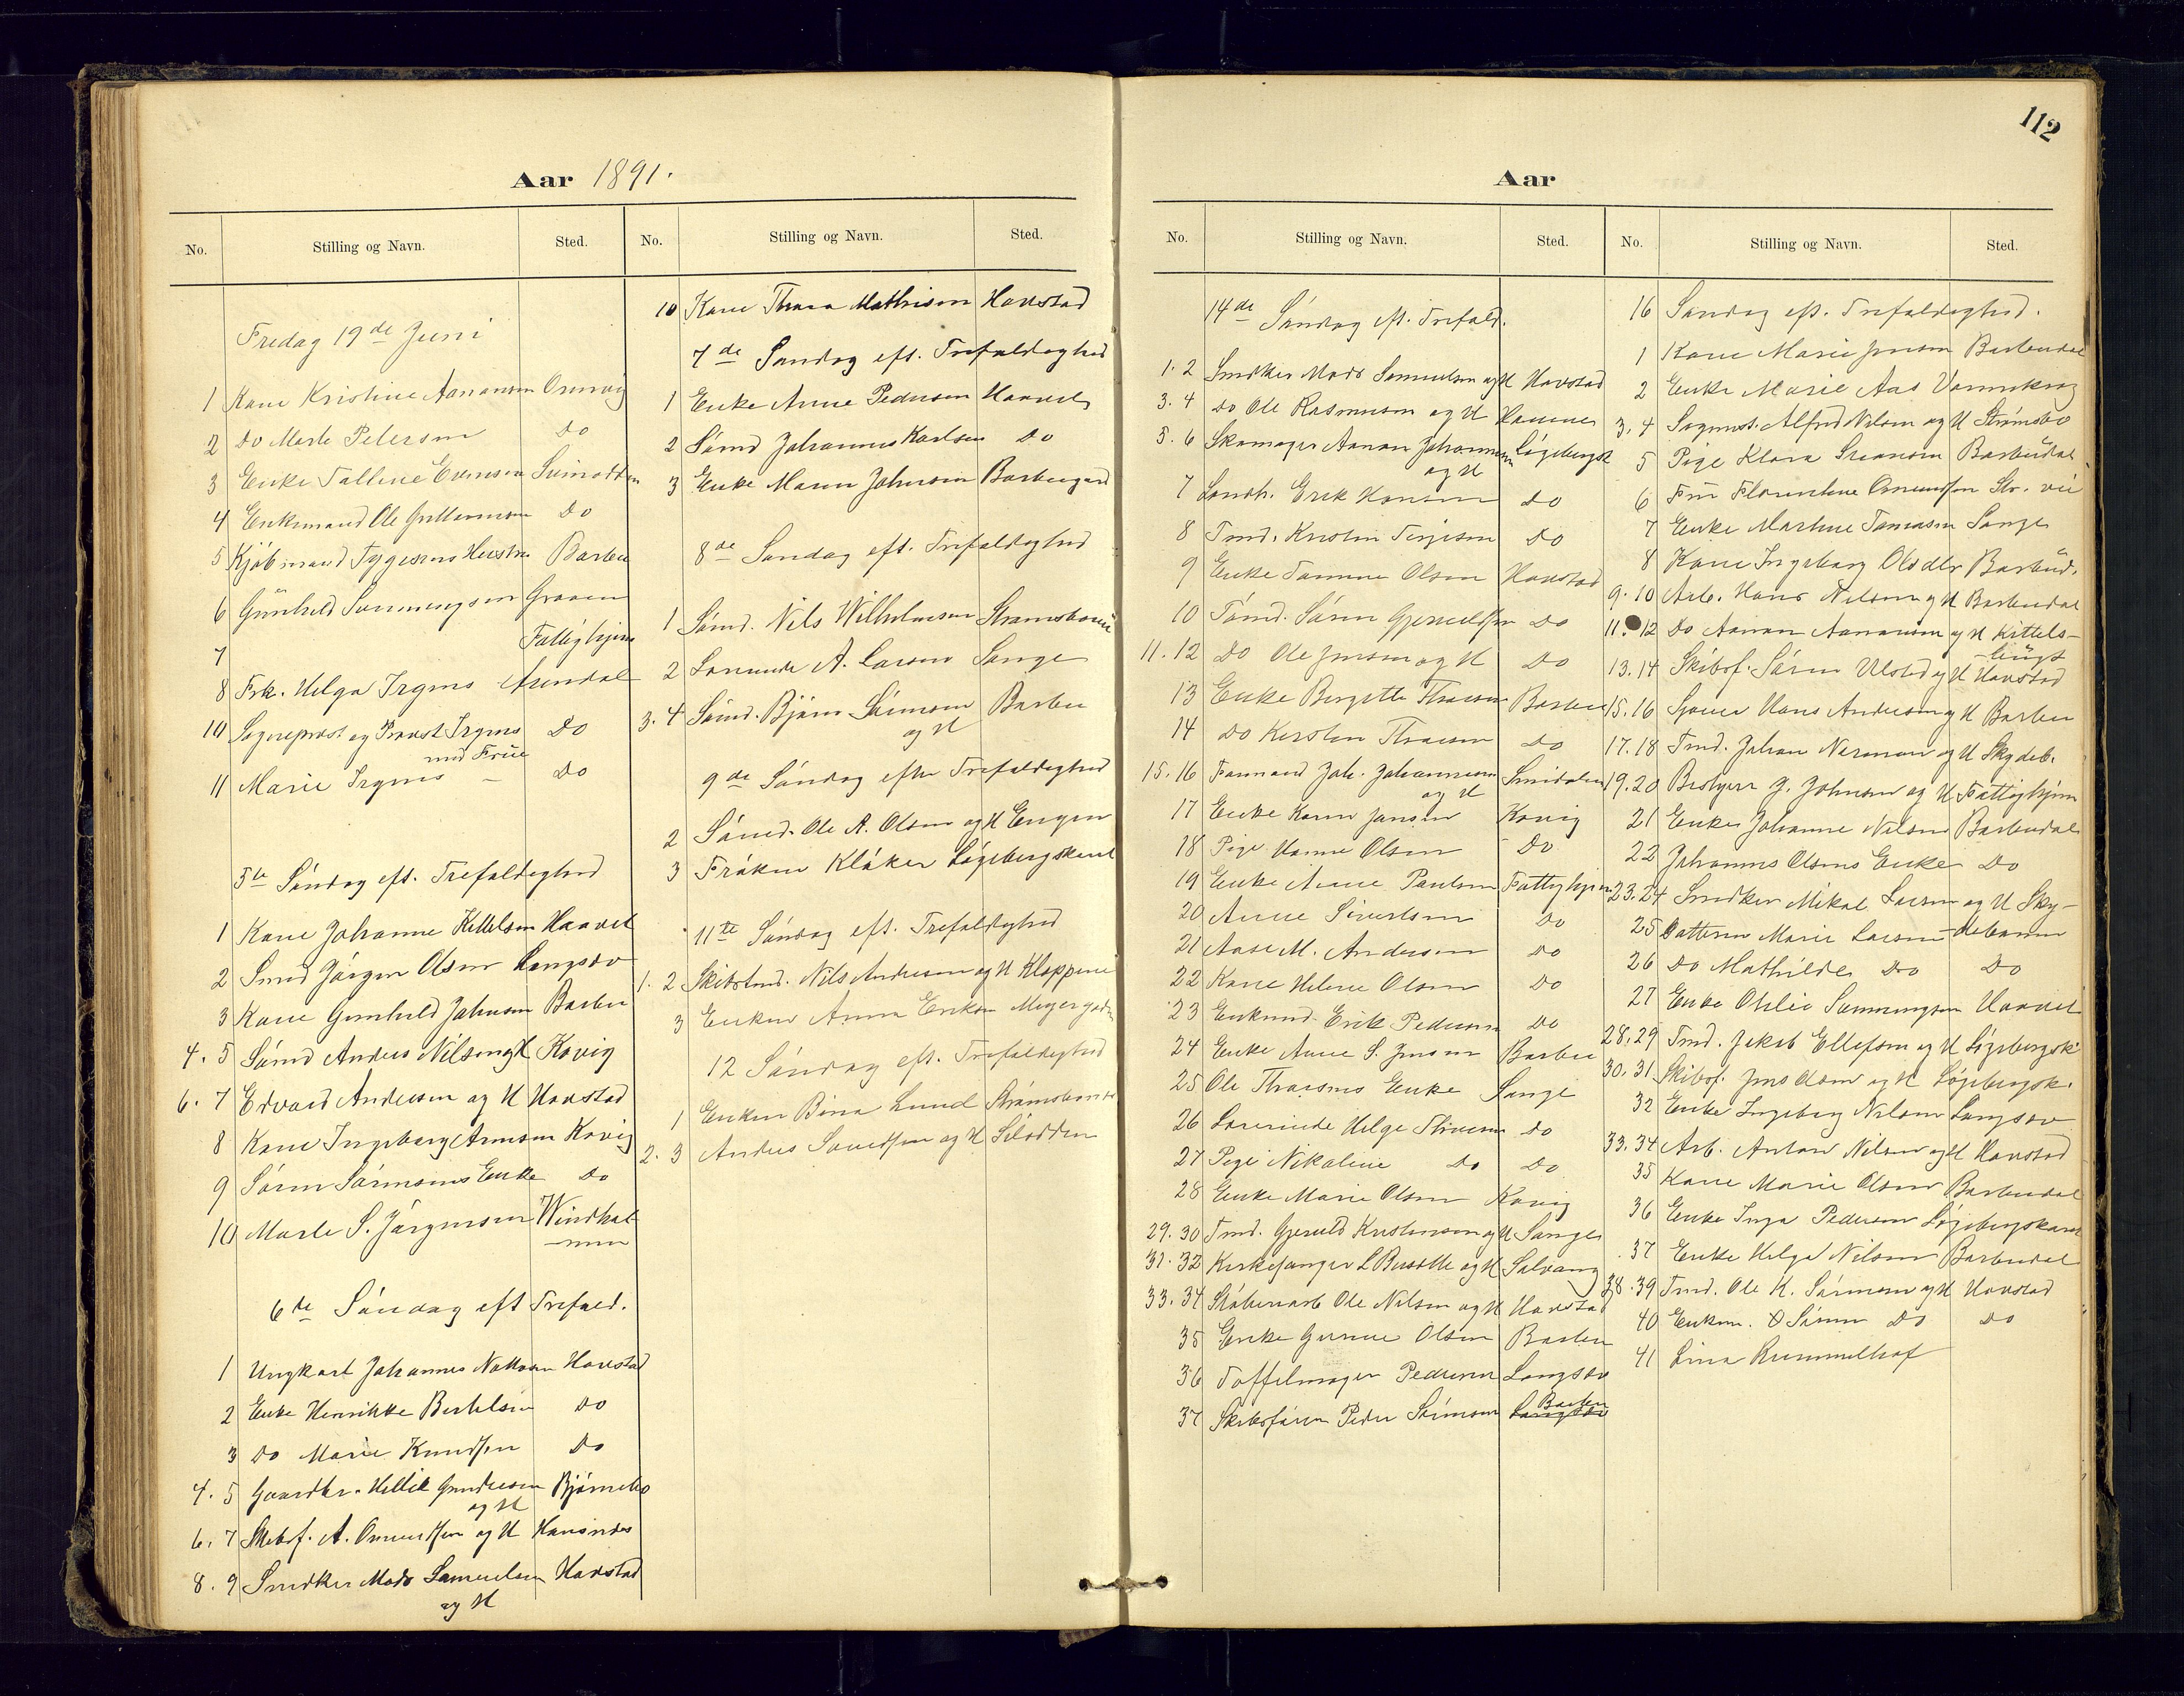 112
Aar 1891.
No. Stilling og Navn. Sted.
Fredag 19de Juni
1 Kone Kristine Aanansen Osmvig
2 Do Marte Petersen Do
3 Enke Talline Evensen Svinodden
4 Enkemand Ole Guttormsen Do
5 Kjøbmand Tygesens Hustru Barbu
6 Gunhild Simmingsen Graaen
7 Fattighjem
8 Frk. Helga Irgens Arendal
10 Sogneprest og Provst Irgens Do
med Frue
11 Marie Irgens - Do
5te Søndag eft. Trefoldighed
1 Kone Johanne Kittelsen Haavet
2 Smed Jørgen Olsen Langsæv
3 Kone Gunhild Johnsen Barbu
4. 5 Sømd Anders Nilsen og H Kovig
6. 7 Edvard Andersen og H Havstad
8 Kone Ingeborg Arnesen Kovig
9 Søren Sørensens Enke Do
10 Marte S. Jørgensen Windhol-
men
6te Søndag eft Trefold.
1 Ungkarl Johannes Havstad
2 Enke Henrikke Bertelsen Do
3 Do Marie Knudsen Do
4. 5 Gaardbr. Hellik Gundersen Bjørnebo
og H
6. 7 Skibsf. A. Omundsen og H
8. 9 Snedker Mads Samuelsen Havstad
og H
No. Stilling og Navn. Sted.
10 Kone Thara Mathisen Havstad
7de Søndag eft. Trefoldighed
1 Enke Anne Pedersen Haavet
2 Sømd Johannes Karlsen Do
3 Enke Maren Johnsen Barbugaard
8de Søndag eft. Trefoldighed
1 Sømd. Nils Wilhelmsen Strømsbovei
2 Lærerinde A. Larsen Songe
3. 4 Sømd. Bjørn Sørensen Barbu
og H
9de Søndag efter Trefoldighed
2 Sømd. Ole A. Olsen og H Engen
3 Frøken Kløker Løgebergskaret
11te Søndag eft. Trefoldighed
1. 2 Skibstmd. Nils Andersen og H Kloppene
3 Enken Anna Eriksen
12 Søndag eft. Trefoldighed
1 Enken Bina Lund
2. 3 Anders og H Silodden
Aar
No. Stilling og Navn. Sted.
14de Søndag eft. Trefold.
1. 2 Snedker Mads Samuelsen og H Havstad
3. 4 Do Ole Rasmussen og H
5. 6 Skomager Aanon Johannesen Løgebergsk
og H
7 Landh. Erik Hansen Do
8 Tmd. Kristen Terjesen Do
9 Enke Tomine Olsen Havstad
10 Tømd. Søren Gjeruldsen Do
11. 12 Do Ole Jensen og H Do
13 Enke Birgitte Thorsen Barbu
14 Do Kirsten Thorsen Do
15. 16 Formand Joh. Johannesen Smidalen
og H
17 Enke Karen Jansen Kovig
18 Pige Hanne Olsen Do
19 Enke Anne Paulsen Fattighjem
20 Anne Sivertsen Do
21 Aase M. Andersen Do
22 Kone Helene Olsen Do
23 Enkemd Erik Pedersen Do
24 Enke Anne S. Jensen Barbu
25 Ole Thorsens Enke Songe
26 Lærerinde Helga Do
27 Pige Nikoline Do Do
28 Enke Marie Olsen Kovig
29. 30 Tmd. Gjeruld Kristensen og H Songe
31. 32 Kirkesanger L og H Solvang
33. 34 Ole Nilsen og H Havstad
35 Enke Gurine Olsen Barbu
36 Toffelmager Pedersen Langsæv
37 Skibsfører Peder Sørensen Barbu Langsæv
No. Stilling og Navn. Sted.
16 Søndag eft. Trefoldighed.
1 Kone Marie Jensen Barbudal
2 Enke Marie Aas
3. 4 Sagmst. Alfred Nilsen og H Strømsbo
5 Pige Klara Svensen Barbudal
6 Fru Florentine Omundsen Str. vei
7 Enke Martine Tomassen Songe
8 Kone Ingeborg Olsdtr Barbud.
9. 10 Arb. Hans Nilsen og H Barbudal
11. 12 Do Aanon Aanonsen og H Kittels-
bugt
13. 14 Skibsf. Søren Ulsted og H Havstad
15. 16 Hans Andersen og H Barbu
17. 18 Tmd. Johan Nerman og H Skydeb.
19. 20 Bestyrer J. Johnsen og H Fattighjem
21 Enke Johanne Nilsen Barbudal
22 Johannes Olsens Enke Do
23. 24 Snedker Mikal Larsen og H Sky-
25 Datteren Marie Larsen -debanen
26 Do Mathilde Do Do
27 Enke Otilie Simmingsen Haavet
28, 29 Tmd. Jakob Ellefsen og H Løgebergsk.
30. 31 Skibsf. Jens Olsen og H Løgebergsk.
32 Enke Ingeborg Nilsen Langsæv
33. 34 Arb. Anton Nilsen og H Havstad
35 Kone Marie Olsen Barbudal
36 Enke Inga Pedersen Løgebergskaret
37 Enke Helga Nilsen Barbudal
38. 39 Tmd. Ole K. Sørensen og H Havstad
40 Enkem. Søren Do Do
41 Lina Rummelhof